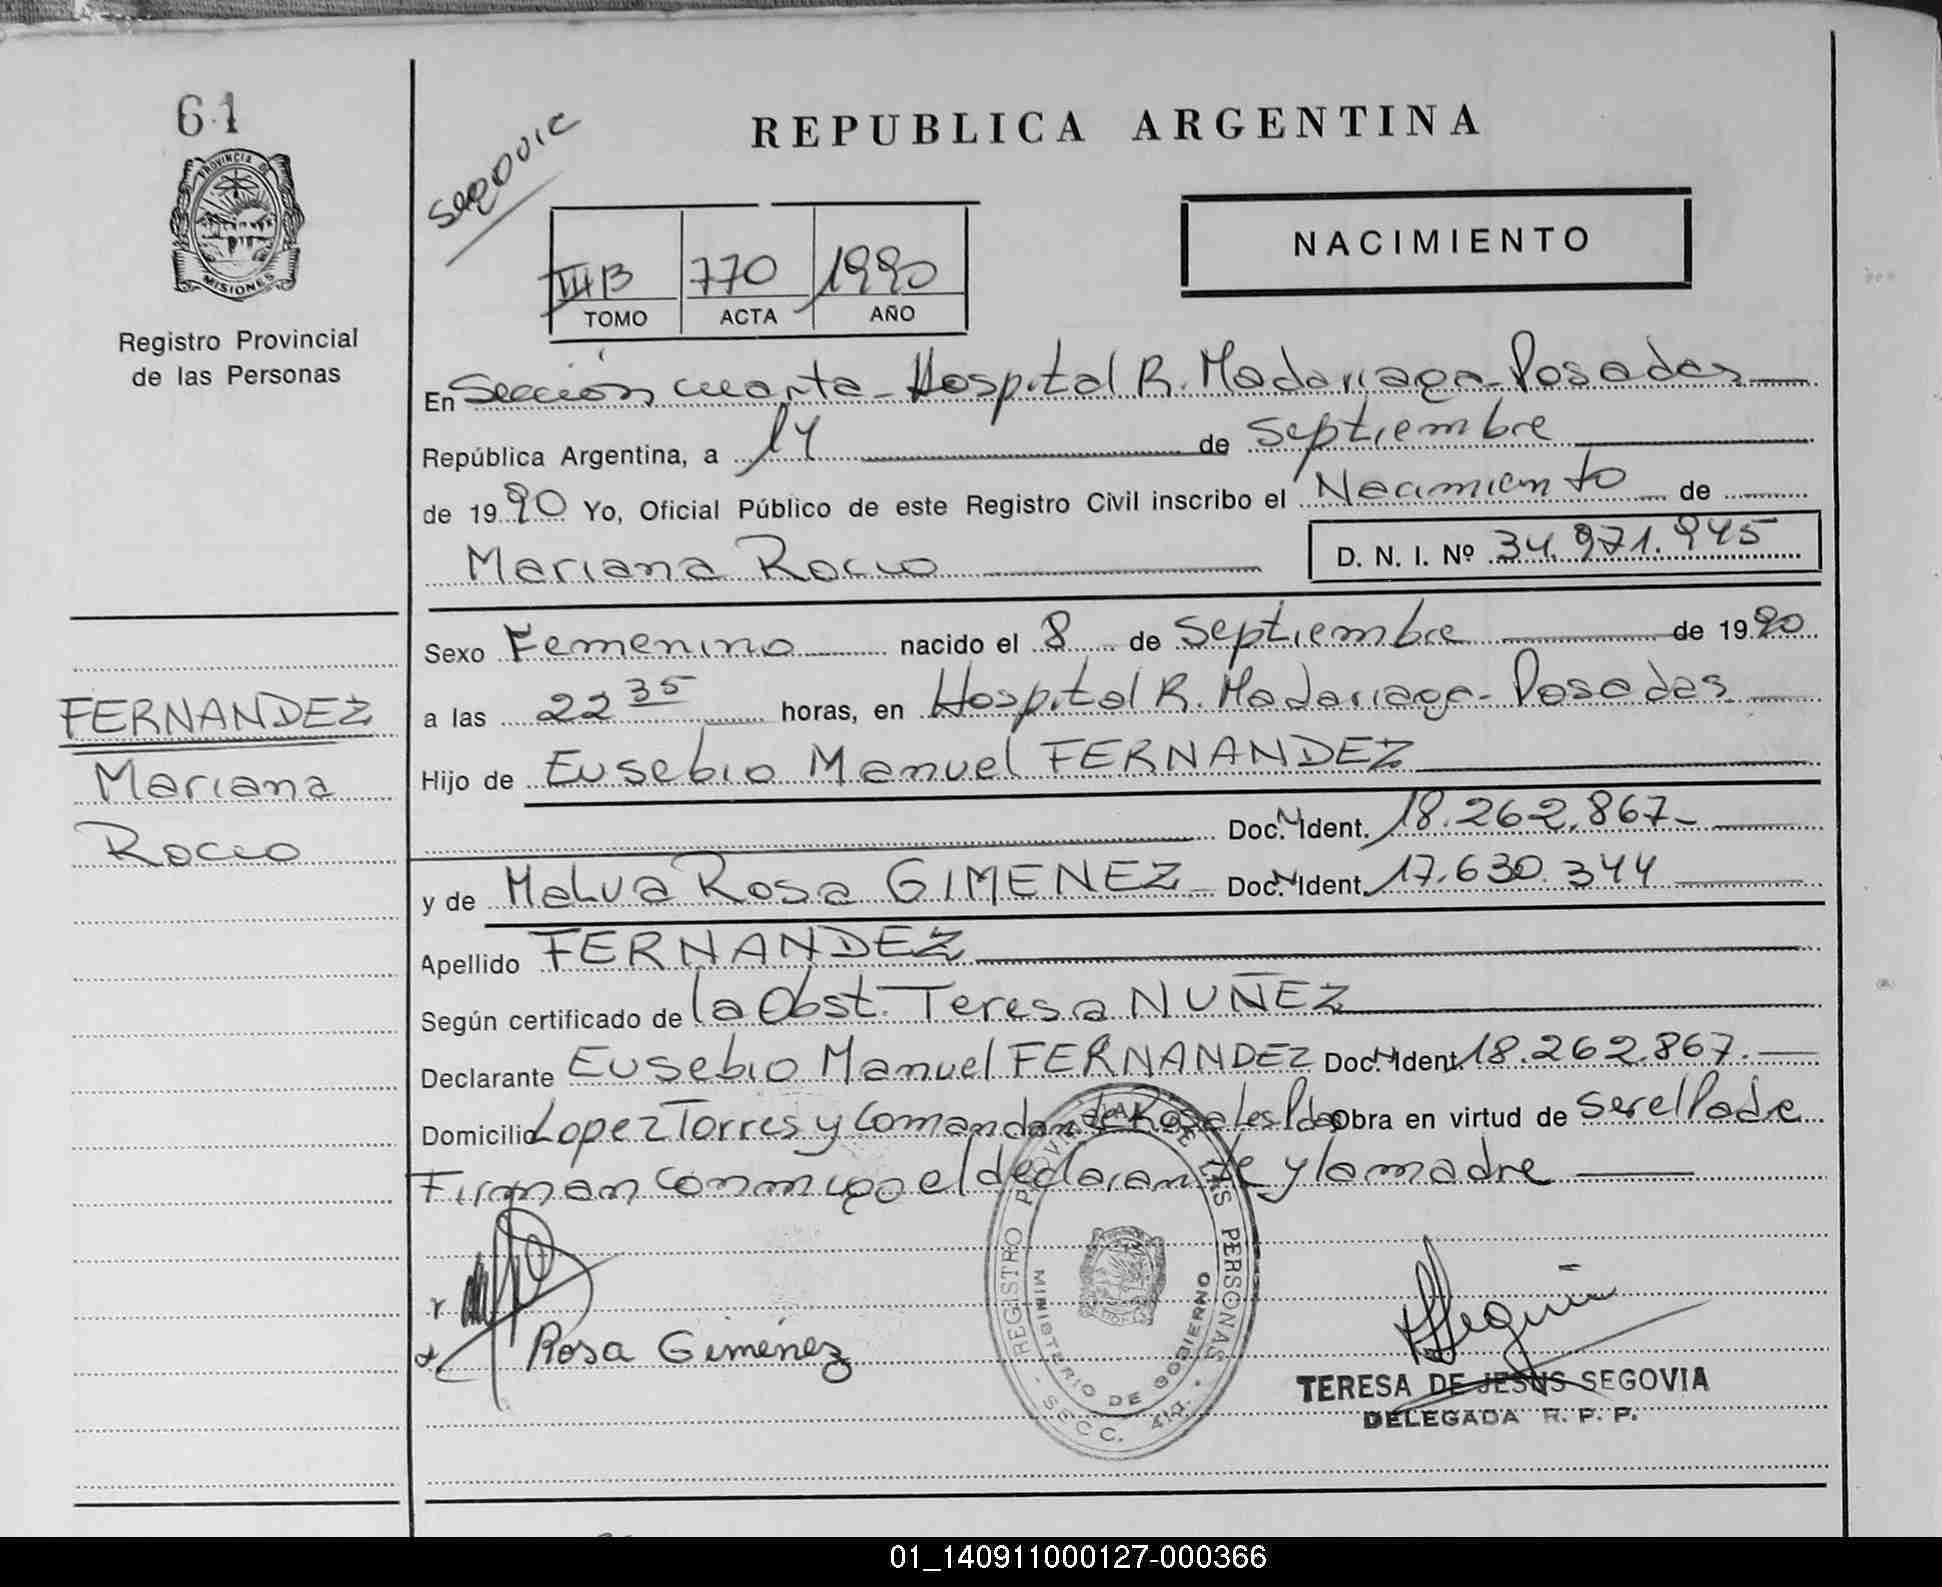 61
PROVINCIA DE
MISIONES
Registro Provincial
de las Personas
FERNANDEZ
Mariana
Rocio
REPUBLICA ARGENTINA
NACIMIENTO
III B 770 1990
TOMO ACTA AÑO
En Sección cuarta - Hospital R. Madariaga - Posadas
República Argentina, a 14 de Septiembre
de 1990 Yo, Oficial Público de este Registro Civil inscribo el Nacimiento de
Mariana Rocio D. N. I. Nº 34.971.945
Sexo Femenino nacido el 8 de Septiembre de 1990
a las 22 35 horas, en Hospital R. Madariaga - Posadas
Hijo de Eusebio Manuel FERNANDEZ
Doc. N Ident. 18.262.867-
y de Malva Rosa GIMENEZ Doc. N Ident. 17.630.344
Apellido FERNANDEZ
Según certificado de la Obst. Teresa NUÑEZ
Declarante Eusebio Manuel FERNANDEZ Doc. N Ident. 18.262.867.
Domicilio Lopez Torres y Comandante Rosales Pdas Obra en virtud de ser el Padre
Firman conmigo el declarante y la madre
Rosa Gimenez
REGISTRO PROVINCIAL DE LAS PERSONAS
MINISTERIO DE GOBIERNO
SECC. 4ta.
TERESA DE JESUS SEGOVIA
DELEGADA R. P. P.
01_140911000127-000366